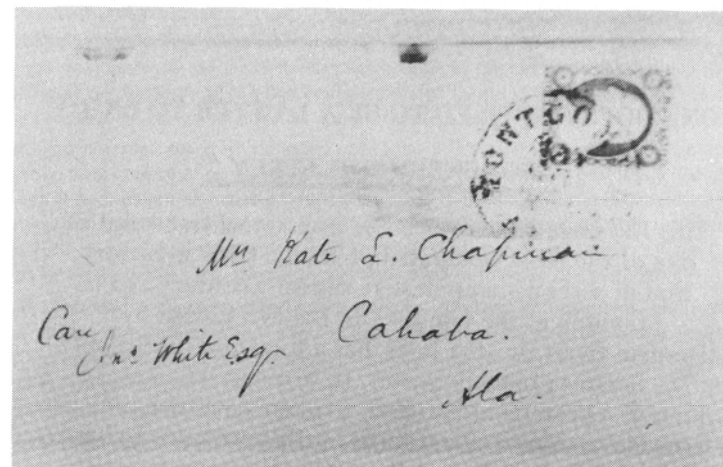 MONTGO
Mrs Kate L. Chapman
Care
Jno White Esq.
Cahaba.
Ala.